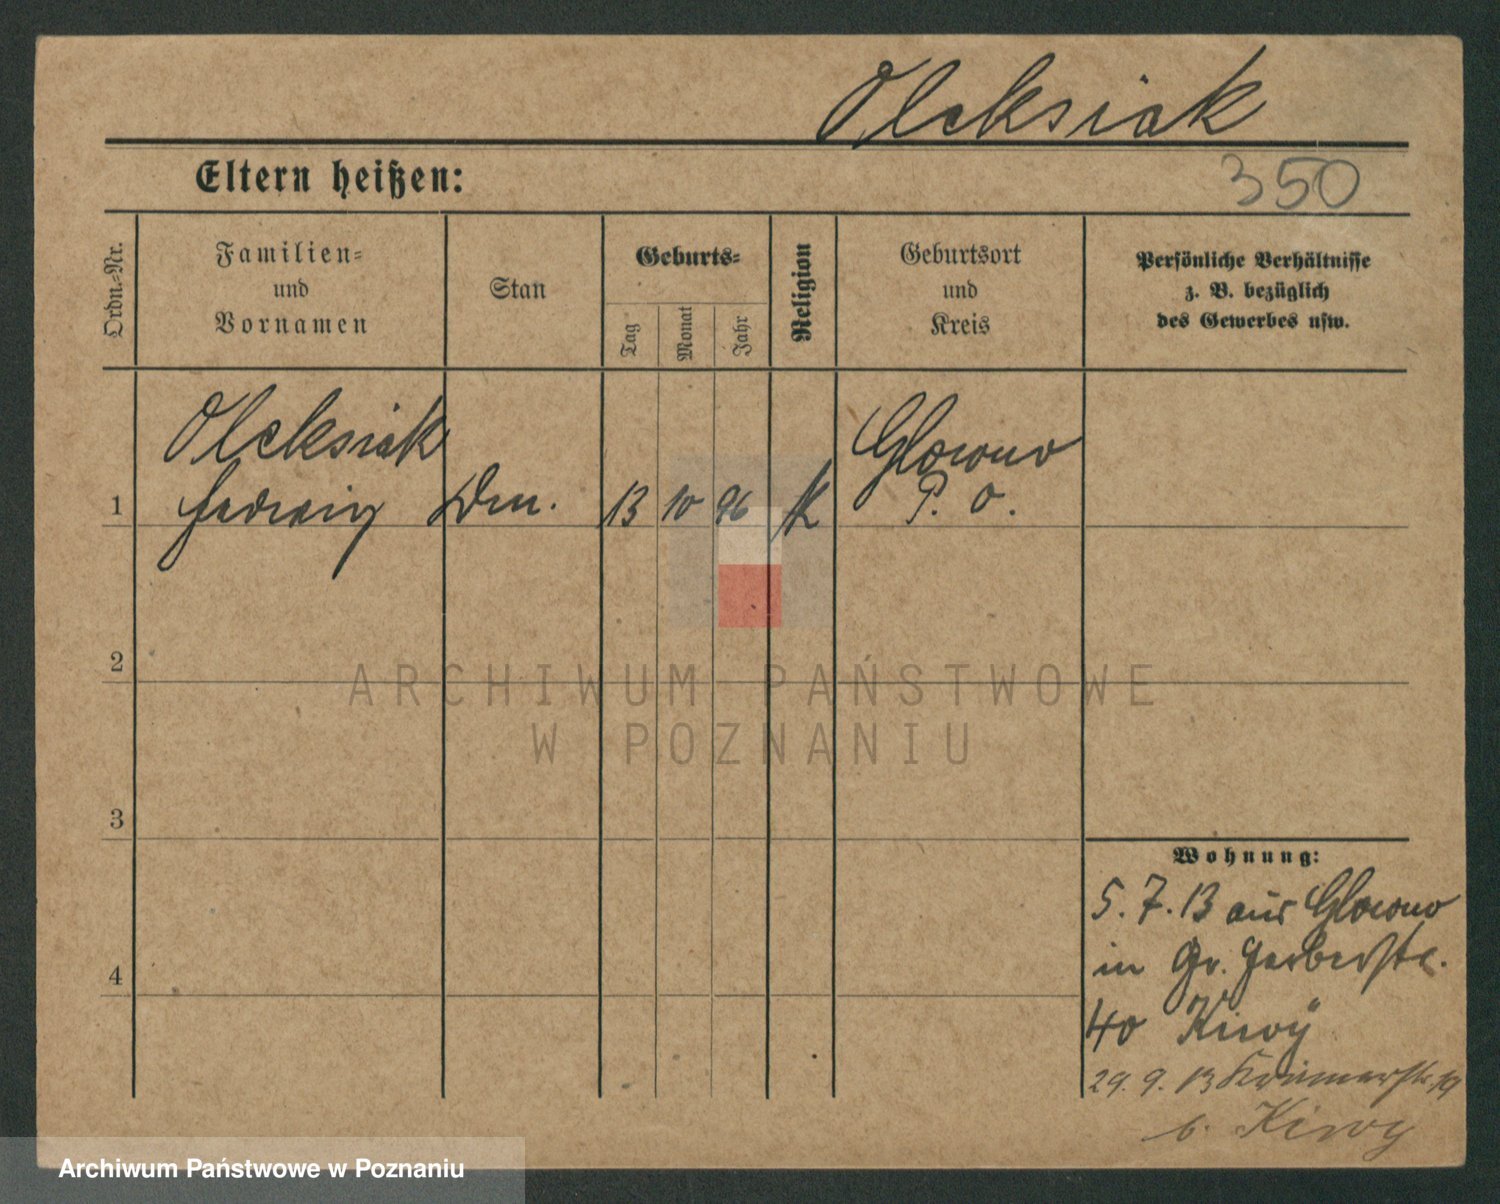 Oleksiak
Eltern heißen:
350
Ordn.-Nr.
Familien-
und
Vornamen
Stan
Geburts-
Tag
Monat
Jahr
Religion
Geburtsort
und
Kreis
Persönliche Verhältnisse
z. B. bezüglich
des Gewerbes usw.
Oleksiak
Glowno
1 Hedwig Dm. 13 10 96 K P. O.
2
ARCHIWUM PAŃSTWOWE
W POZNANIU
3
Wohnung:
5. 7. 13 aus Glowno
in Gr. Gerberstr.
4
40 Kiwy
29. 9. 13 Krämerstr. 19
b. Kiwy
Archiwum Państwowe w Poznaniu